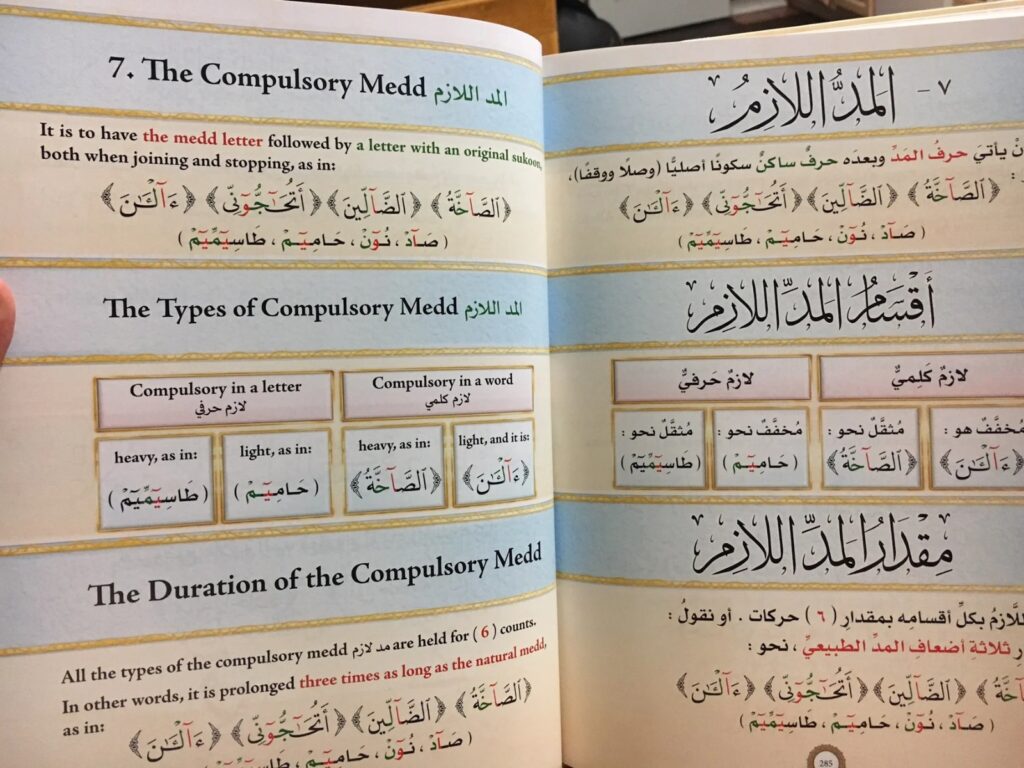 7. The Compulsory Medd المد اللازم
It is to have the medd letter followed by a letter with an original sukoon,
both when joining and stopping, as in:
﴿ٱلصَّآخَّةُ﴾ ﴿ٱلضَّآلِّينَ﴾ ﴿أَتُحَـٰٓجُّوٓنِّى﴾ ﴿ءَآلْـَٔـٰنَ﴾
( صَآدْ ، نُوٓنْ ، حَامِيٓـمْ ، طَاسِيٓمِّيٓمْ )
The Types of Compulsory Medd المد اللازم
Compulsory in a letter Compulsory in a word
لازم حرفي لازم كلمي
heavy, as in: light, as in: heavy, as in: light, and it is:
( طَاسِيٓمِّيٓمْ ) ( حَامِيٓـمْ ) ﴿ٱلصَّآخَّةُ﴾ ﴿ءَآلْـَٔـٰنَ﴾
The Duration of the Compulsory Medd
All the types of the compulsory medd مد لازم are held for ( 6 ) counts.
In other words, it is prolonged three times as long as the natural medd,
as in:
﴿ٱلصَّآخَّةُ﴾ ﴿ٱلضَّآلِّينَ﴾ ﴿أَتُحَـٰٓجُّوٓنِّى﴾ ﴿ءَآلْـَٔـٰنَ﴾
( صَآدْ ، نُوٓنْ ، حَامِيٓـمْ ، طَاسِيٓمِّيٓمْ
٧ - المَدُّ اللازِمُ
يأتيَ حرفُ المَدِّ وبعدَه حرفٌ ساكنٌ سكونًا أصليًّا (وصلًا ووقفًا)،
:
﴿ٱلصَّآخَّةُ﴾ ﴿ٱلضَّآلِّينَ﴾ ﴿أَتُحَـٰٓجُّوٓنِّى﴾ ﴿ءَآلْـَٔـٰنَ﴾
( صَآدْ ، نُوٓنْ ، حَامِيٓـمْ ، طَاسِيٓمِّيٓمْ )
أَقْسَامُ المَدِّ اللازِمِ
لازمٌ كَلِميٌّ لازمٌ حَرفيٌّ
مُخفَّفٌ هو : مُثقَّلٌ نحو : مُخفَّفٌ نحو : مُثقَّلٌ نحو :
﴿ءَآلْـَٔـٰنَ﴾ ﴿ٱلصَّآخَّةُ﴾ ( حَامِيٓـمْ ) ( طَاسِيٓمِّيٓمْ )
مِقْدَارُ المَدِّ اللازِمِ
بكلِّ أقسامِه بمقدارِ ( ٦ ) حركات . أو نقولُ :
ثلاثةِ أضعافِ المدِّ الطبيعيِّ ، نحو :
﴿ٱلضَّآلِّينَ﴾ ﴿أَتُحَـٰٓجُّوٓنِّى﴾ ﴿ءَآلْـَٔـٰنَ﴾
( صَآدْ ، نُوٓنْ ، حَامِيٓـمْ ، طَاسِيٓمِّيٓمْ )
285